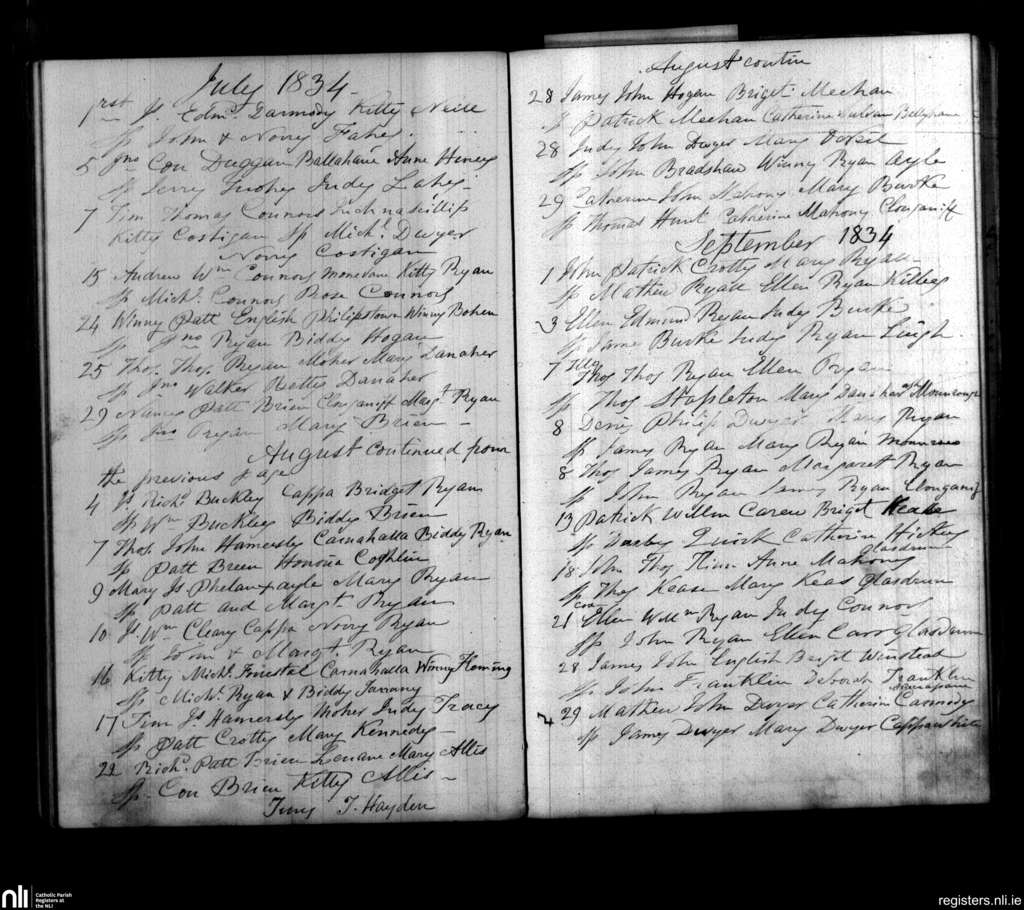 July 1834
1rst Js. Edmd. Darmody Kitty Neill
Sp John & Norry Fahey
5 Jno Con Duggan Ballahane Anne Heney
Sp Jerry Tuohey Judy Lahey
7 Tim Thomas Connors Inchnaskillip
Kitty Costigan Sp Michl. Dwyer
Norry Costigan
15 Andrew Wm Connors Monevane Kitty Ryan
Sp Michl. Connors Rose Connors
24 Winny Patt English Philipstown Winny Bohen
Sp Jno Ryan Biddy Hogan
25 Thos. Thos. Ryan Moher Mary Danaher
Sp Jno Walker Betty Danaher
29 Nancy Patt Brien Clonganiff Margt. Ryan
Sp Jno Ryan Mary Brien
August continued from
the previous page
4 Js Richd. Buckley Cappa Bridget Ryan
Sp Wm Buckley Biddy Brien
7 Thos. John Hamersly Carnahalla Biddy Ryan
Sp Patt Breen Honoria Coghlin
9 Mary Js Phelan Ayle Mary Ryan
Sp Patt and Margt. Ryan
10 Js Wm Cleary Cappa Norry Ryan
Sp John & Margt Ryan
16 Kitty Michl. Finestal Carnahalla Winny Fleming
Sp Michl. Ryan & Biddy
17 Tim Js Hamersly Moher Judy Tracy
Sp Patt Crotty Mary Kennedy
22 Richd. Patt Brien Mary Allis
Sp Con Brien Kitty Allis
T. Hayden
August contin
28 James John Hogan Briget Meehan
Sp Patrick Meehan Catherine
28 Judy John Dwyer Mary
Sp John Bradshaw Winny Ryan Ayle
29 Catherine John Mahony Mary Burke
Sp Thomas Hunt Catherine Mahony Clonganiff
September 1834
1 John Patrick Crotty Mary Ryan
Sp Mathew Ryan Ellen Ryan Killeg
3 Ellen Edmond Ryan Judy Burke
Sp James Burke Judy Ryan
7 Thos Thos Ryan Ellen Ryan
Sp Thos Stapleton Mary Danihar Mounroe
8 Denis Philip Dwyer Mary Ryan
Sp James Ryan Mary Ryan Mounroe
8 Thos James Ryan Margaret Ryan
Sp John Ryan Ryan Clonganif
13 Patrick Willm Carew Briget Keane
Sp Darby Quirk Catherine Hickey
Glasdrum
18 John Thos Anne Mahony
Sp Thos Kease Mary Keas Glasdrum
21 Ellen Willm Ryan Judy Connors
Sp John Ryan Ellen Carr Glasdrum
28 James John English Brigit Winstead
Sp John Franklin Deborah Franklin
29 Mathew John Dwyer Catherin Carmody
Sp James Dwyer Mary Dwyer Cappawhite
nli
Catholic Parish
Registers at
the NLI
registers.nli.ie